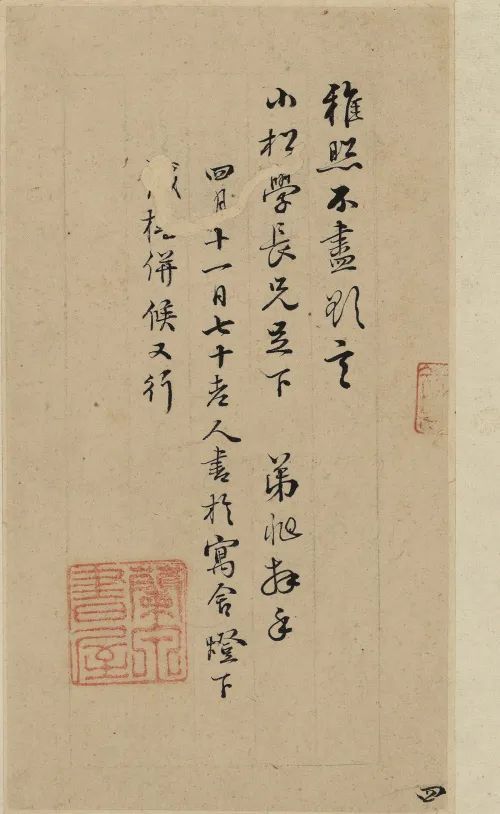 雅照不盡欲言
小松學長兄足下 弟拜手
四月十一日七十老人書於寓舍燈下
併候又行
書屋
四